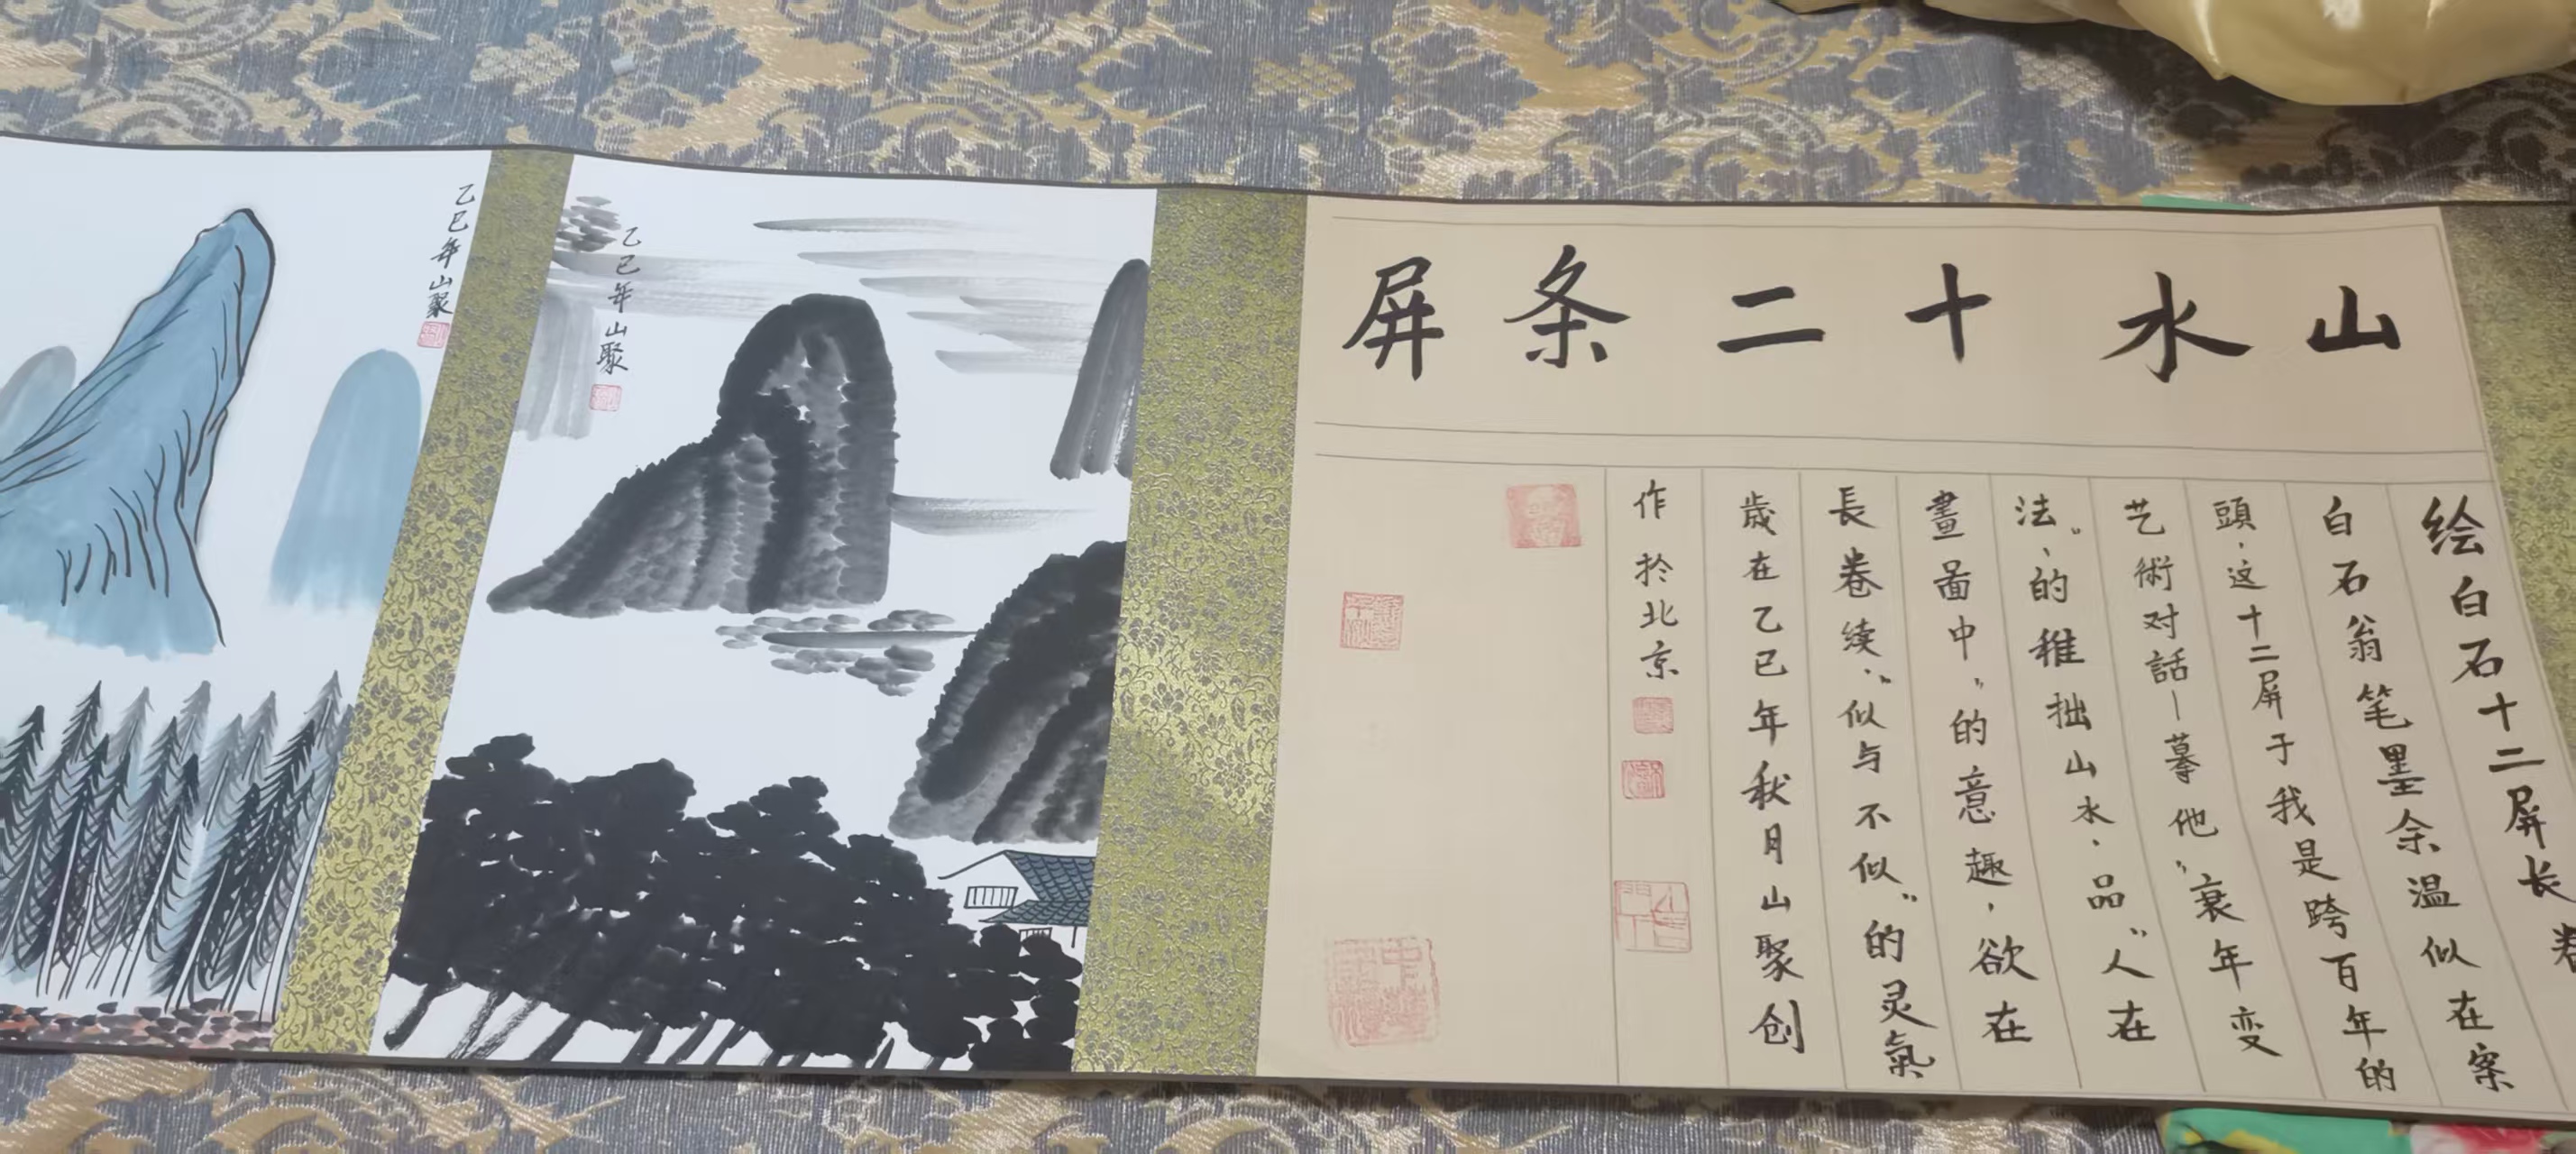 山水十二条屏
绘白石十二屏长卷
白石翁笔墨余温似在案
頭,这十二屏于我是跨百年的
艺術对話—摹他"衰年变
法"的稚拙山水,品"人在
畫面中"的意趣,欲在
長卷续"似与不似"的灵氣
歲在乙巳年秋月山聚创
作於北京
乙巳年山聚
乙巳年山聚